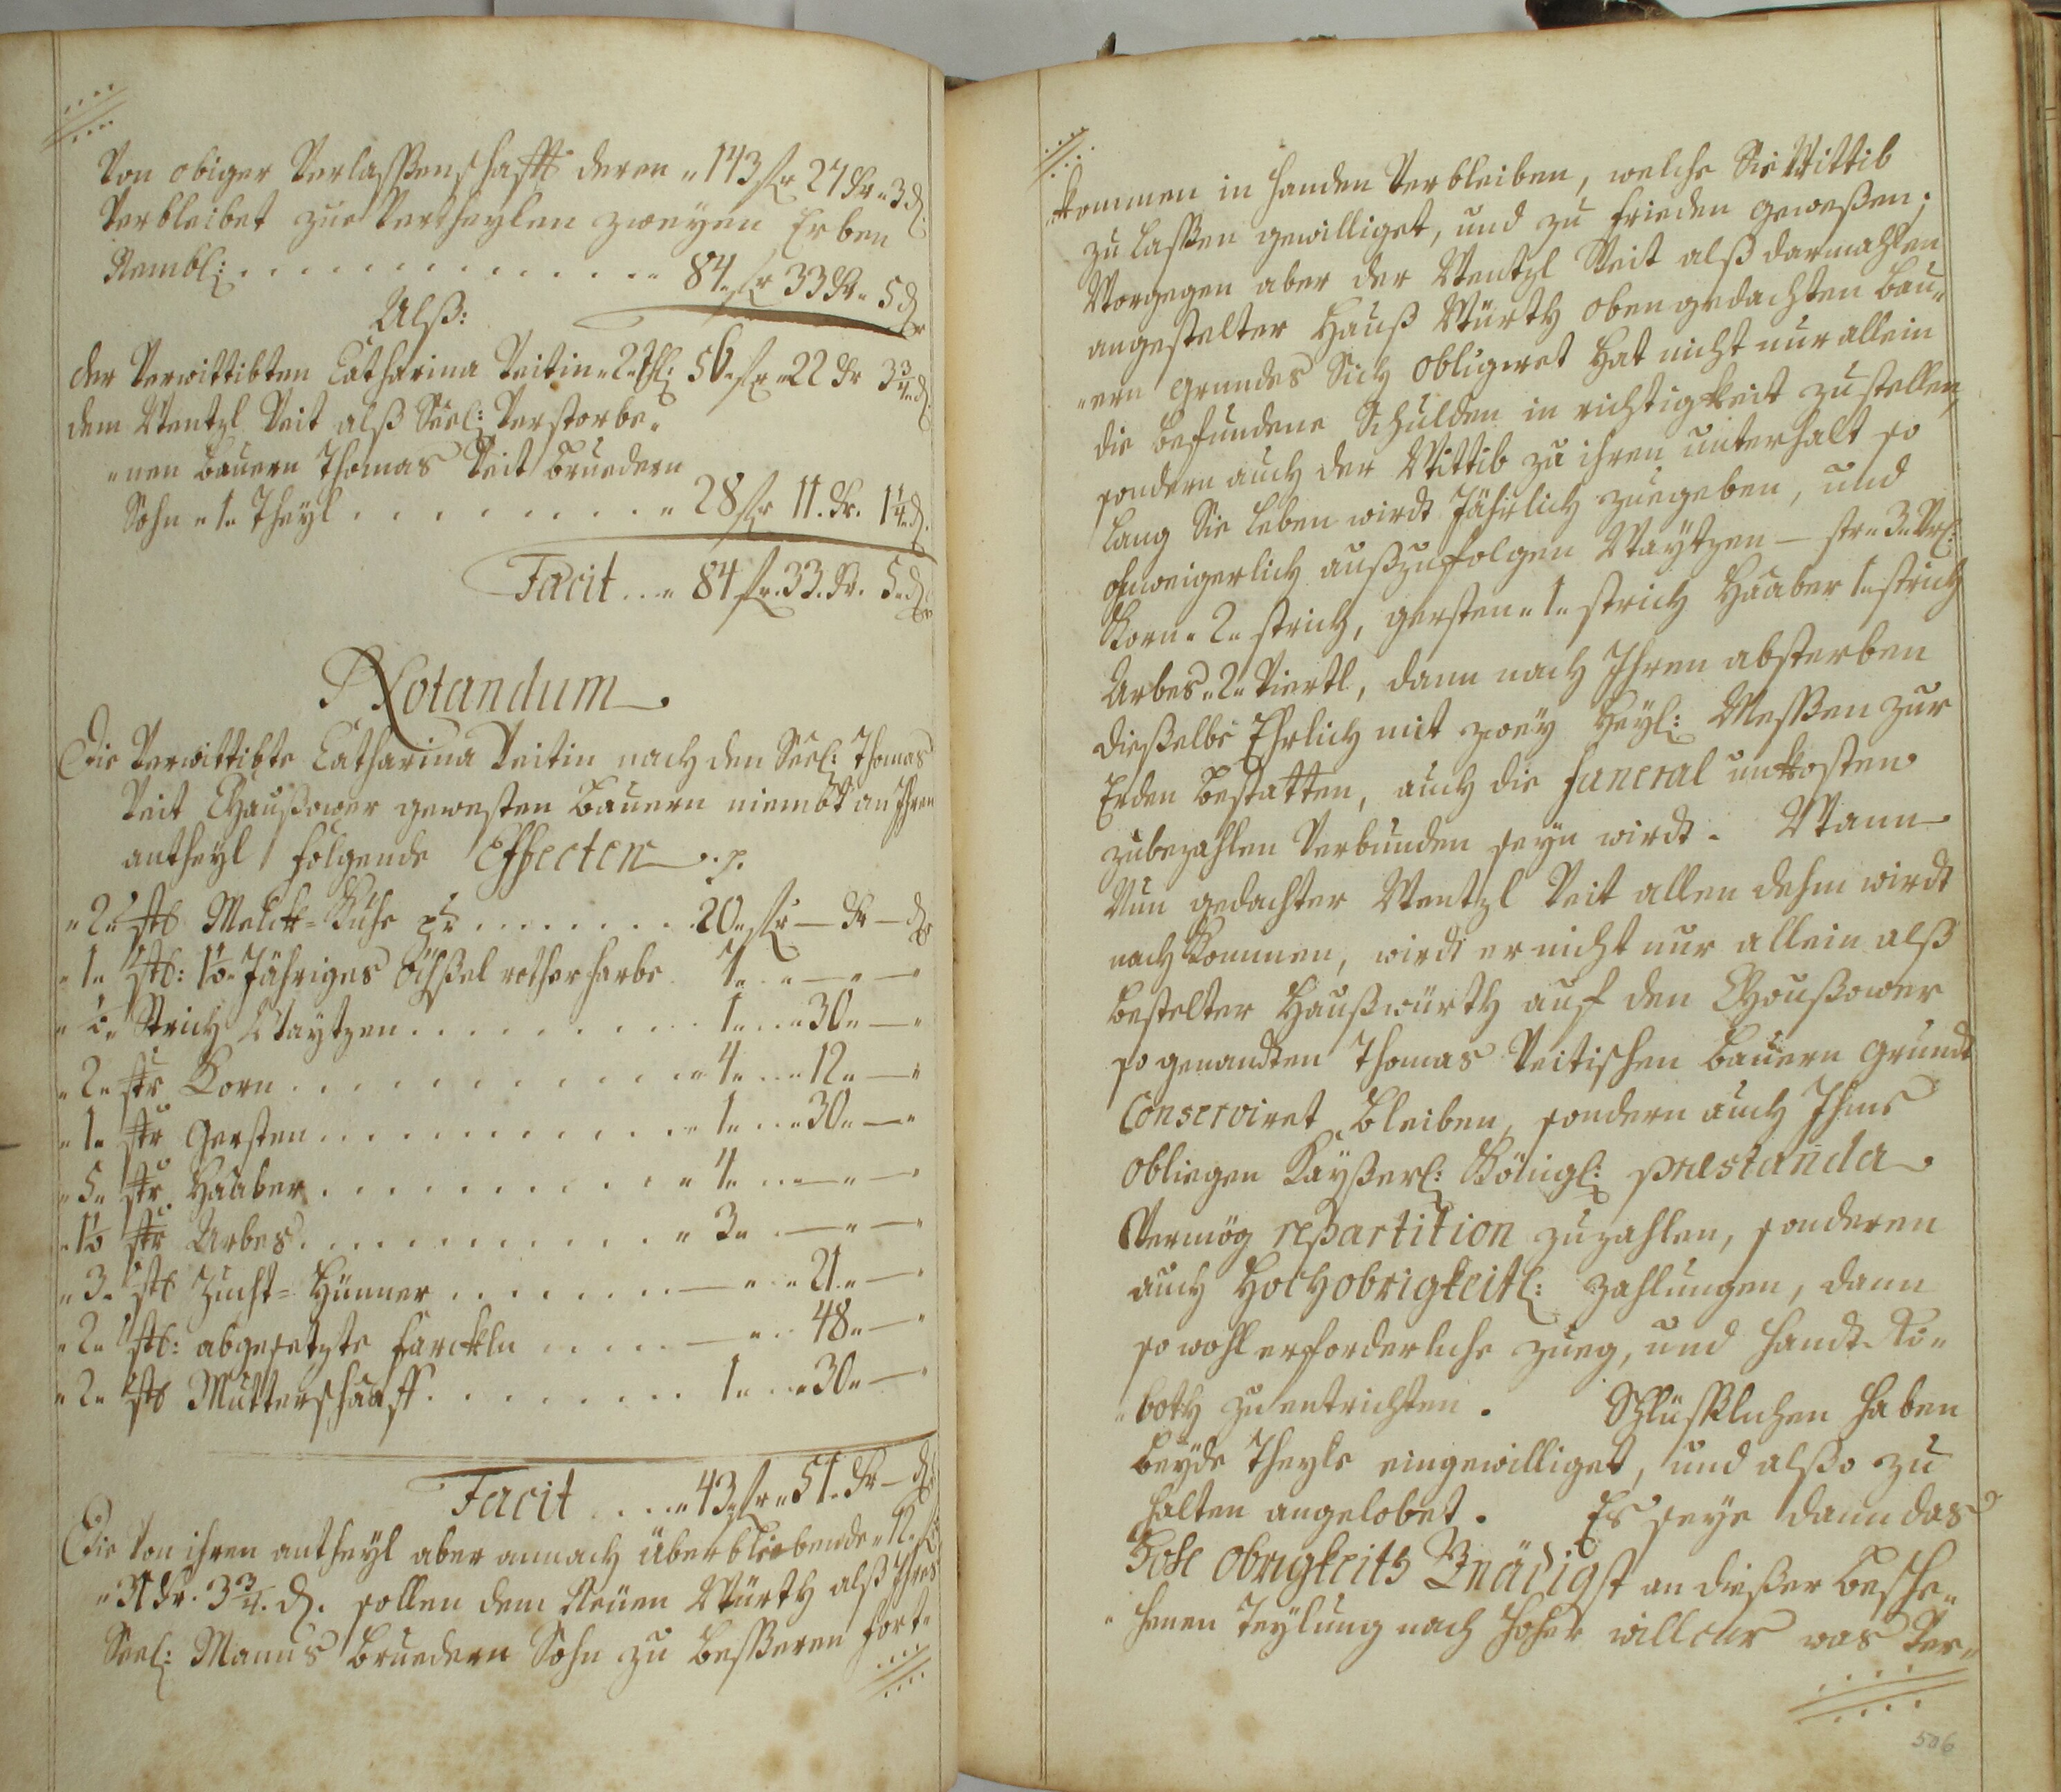 Von obiger Verlassenschafft deren „ 143 fl 27 Kr „ 3 d.
Verbleibet zue Vertheylen zweyen Erben
Nembl: . . . . . . . . . . . . . „ 84 fl 33 Kr „ 5 d
Alß:
der Verwittibten Catharina Veitin „ 2 „ Thl: 56 „ fl „ 22 Kr 3 3/4 „ d.
dem Wentzl Veit alß Seel: Verstorbe„
„nen Bauern Thomas Veit Bruedern
Sohn „ 1 „ Theyl . . . . . . . . . . „ 28 fl 11. Kr. 1 1/4 „ d.
Facit . . . „ 84 fl. 33. Kr. 5. d
Notandum
Die Verwittibte Catharina Veitin nach den Seel: Thomas
Veit Chaußower gewesten Bauern niembt an Ihren
antheyl folgende Effecten . p.
„ 2 „ stk Melck-Kühe pr . . . . . . . . 20 „ fl — Kr — d
„ 1 „ stk: 1 1/2 Jähriges Öchßel rother farbe 7 „ „ — „ —
„ 1/2 „ Strich Waytzen . . . . . . . . . . 1 „ . . „ 30 „ — „
„ 2 „ str Korn . . . . . . . . . . . . . „ 4 „ . . „ 12 „ — „
„ 1 „ str Gersten . . . . . . . . . . . . „ 1 „ . . „ 30 „ — „
„ 5 „ str Haaber . . . . . . . . . . . „ 4 „ . . — „ — „
„ 1 1/2 str Arbes . . . . . . . . . . . . „ 3 „ . — „ — „
„ 3 „ stk Zucht-Hünner . . . . . . . . — „ „ 21 „ — „
„ 2 „ stk: abgesetzte farckln . . . . . — „ . . 48 „ — „
„ 2 „ stk Mutterschaaff . . . . . . . . 1 „ . . „ 30 „ — „
Facit . . . . „ 43 „ fl „ 51. Kr — d
Die Von ihren antheyl aber annach überbliebende „ 12 „ fl
„ 31 Kr. 3 3/4. d. sollen dem Neuen Würth alß Ihres
Seel: Manns Bruedern Sohn zu besseren fort„
„kommen in handen Verbleiben, welche Sie Wittib
zu lassen gewilliget, und zu frieden geweßen;
Worgegen aber der Wentzl Veit alß darmahlen
angestelter Hauß Würth oben gedachten Bau„
„ern grundes Sich obligiret hat nicht nur allein
die befundene Schulden in richtigkeit zu stellen,
sondern auch der Wittib zu ihren unterhalt so
lang Sie leben wirdt Jährlich zuegeben, und
ohnweigerlich außzufolgen Waytzen — str „ 3 „ Vrl:
Korn „ 2 „ strich, gersten „ 1 „ strich Haaber 1 „ strich
Arbes „ 2 „ Viertl, dann nach Ihren absterben
dieselbe Ehrlich mit zwey heyl: Messen zur
Erden bestatten, auch die funeral unkosten
zubezahlen Verbunden seyn wirdt. Wann
Nun gedachter Wentzl Veit allen dehm wirdt
nach kommen, wirdt er nicht nur allein alß
bestelter Haußwürth auf den Choußower
so genandten Thomas Veitischen Bauern Grundt
Conserviret bleiben, sondern auch Ihme
obliegen Kayßerl: Königl: præstanda
Vermög repartition zuzahlen, sonderen
auch Hochobrigkeitl: Zahlungen, dann
so wohl erforderliche Zueg, und Handt-Ro„
„both zu entrichten. Schlüßlichen haben
beyde Theyle eingewilliget, und alßo zu
halten angelobet. Es seye dann das
Hohe Obrigkeits Gnädigst an dießer besche„
„henen Teylung nach hoher willcur was Ver„
506